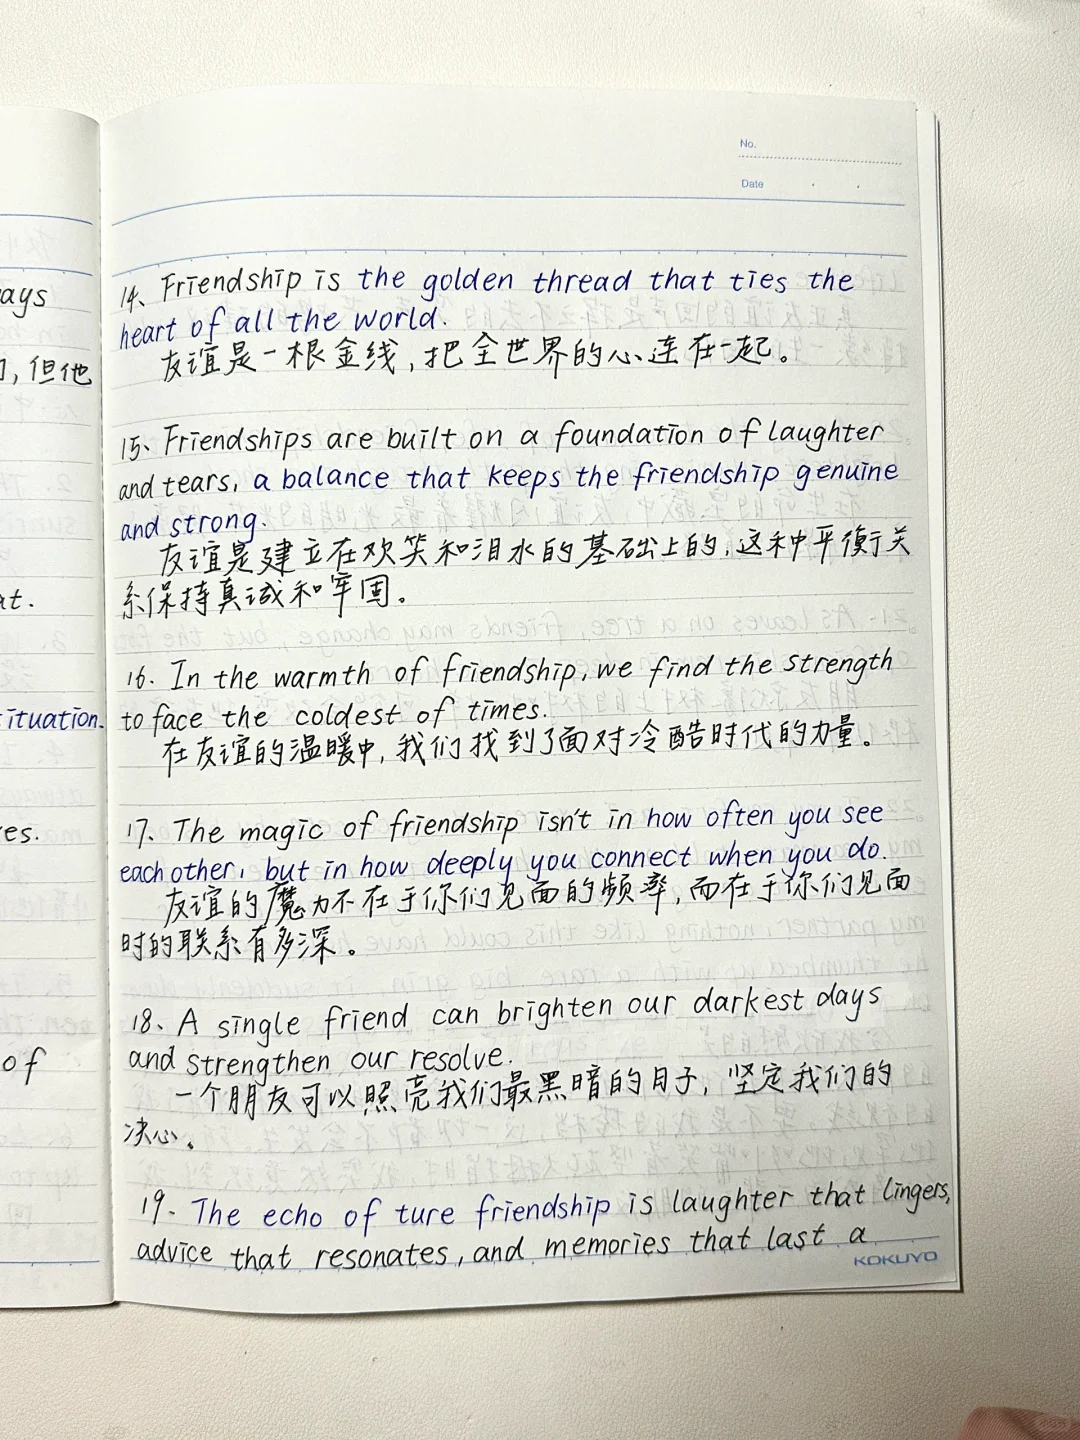 No.
Date
ays
，但他
at.
ituation.
es.
of
14、Friendship is the golden thread that ties the
heart of all the world.
友谊是一根金线，把全世界的心连在一起。
15、Friendships are built on a foundation of laughter
and tears, a balance that keeps the friendship genuine
and strong.
友谊是建立在欢笑和泪水的基础上的，这种平衡关
系保持真诚和牢固。
16. In the warmth of friendship, we find the strength
to face the coldest of times.
在友谊的温暖中，我们找到了面对冷酷时代的力量。
17. The magic of friendship isn't in how often you see
each other, but in how deeply you connect when you do.
友谊的魔力不在于你们见面的频率，而在于你们见面
时的联系有多深。
18、A single friend can brighten our darkest days
and strengthen our resolve.
一个朋友可以照亮我们最黑暗的日子，坚定我们的
决心。
19. The echo of ture friendship is laughter that lingers,
advice that resonates, and memories that last a
KOKUYO